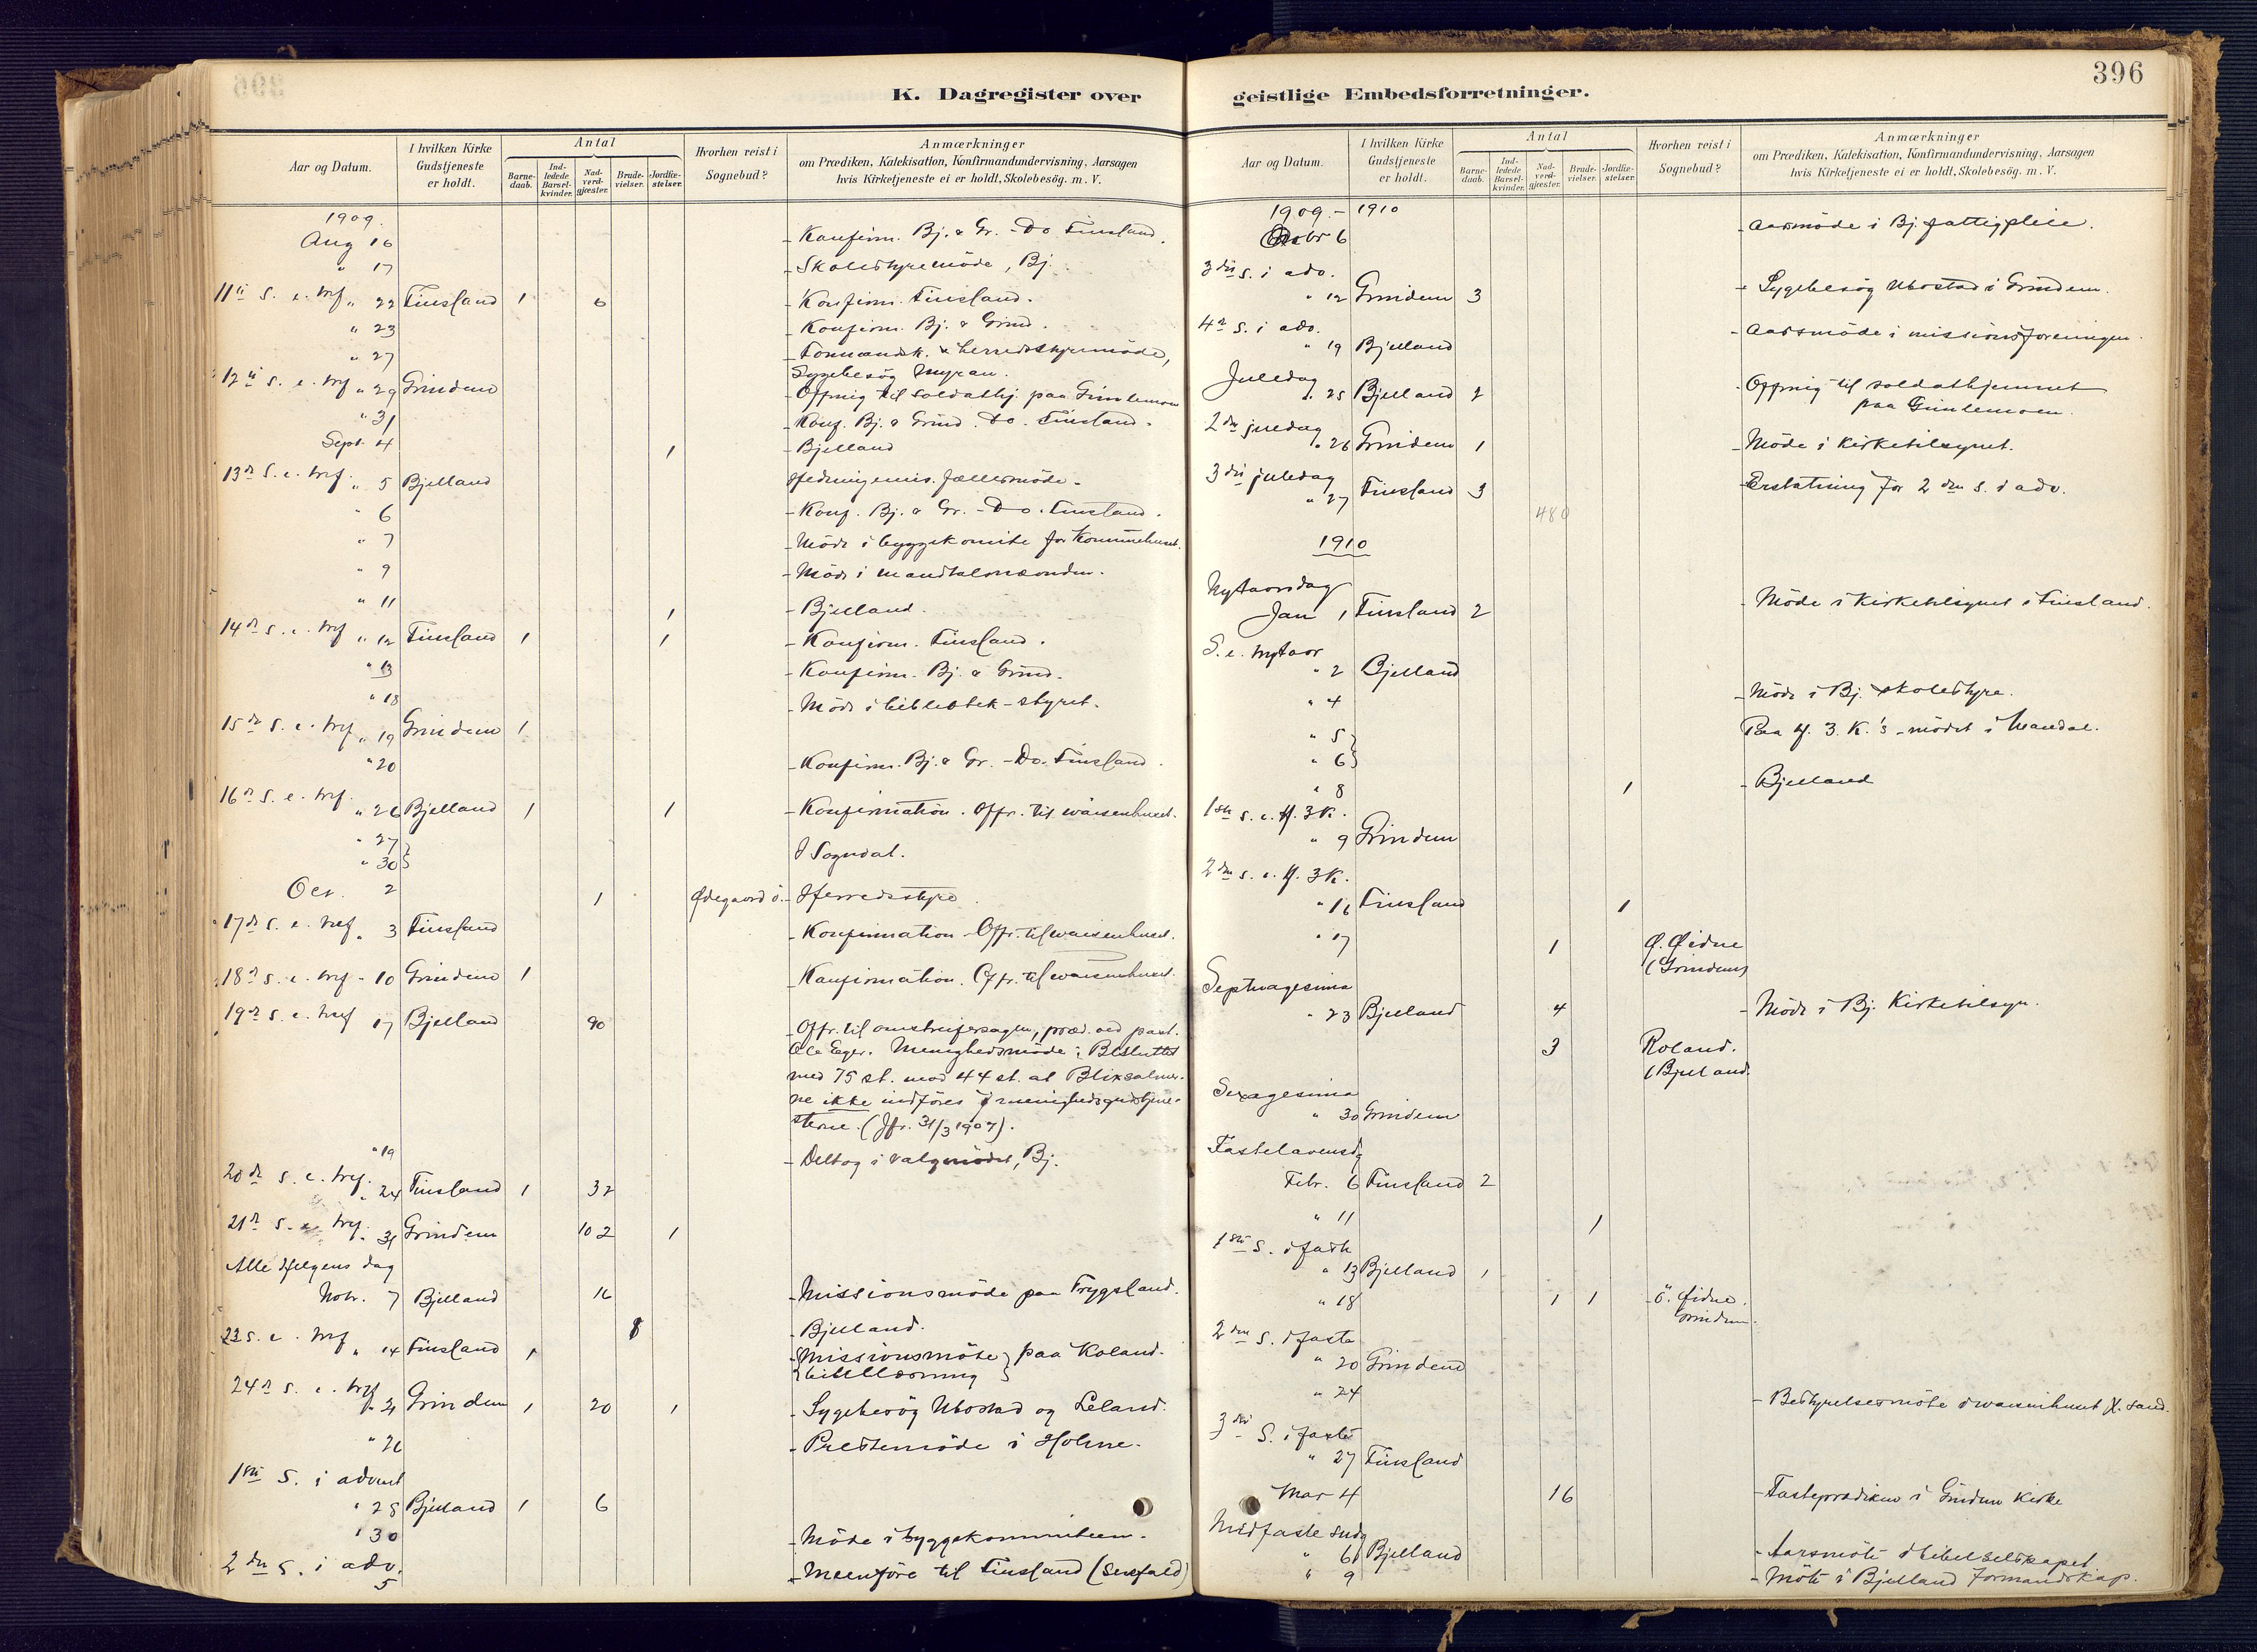 K. Dagregister over
Aar og Datum.
I hvilken Kirke Gudstjeneste er holdt.
Antal
Barnedaab.
Indledede Barselkvinder.
Nadverdgjester.
Brudevielser.
Jordfæstelser.
Hvorhen reist i Sognebud?
Anmærkninger
om Prædiken, Katekisation, Konfirmandundervisning, Aarsagen
hvis Kirketjeneste ei er holdt, Skolebesög. m. V.
1909.
Aug 16 - Konfirm. Bj. & Gr. - Do Finsland.
" 17 - Skolestyremöde, Bj.
11te S. e. tref. " 22 Finsland 1 6 - Konfirm. Finsland.
" 23 - Konfirm. Bj. & Grind.
" 27 - Formandsk. & herredsstyremöde,
Sygebesög Myran.
12te S. e. tref " 29 Grindem - Offring til soldathj. paa Gimlemoen
" 31 - Konf. Bj. & Grind. Do. Finsland.
Sept. 4 1 - Bjelland
13de S. e. tref. " 5 Bjelland fællesmöde.
" 6 - Konf. Bj. & Gr. - Do. Finsland.
" 7 - Möde i byggekomite for Kommunehuset.
" 9 - Möde i
" 11 1 - Bjelland.
14de S. e. tref " 12 Finsland 1 1 - Konfirm. Finsland.
" 13 - Konfirm. Bj. & Grind.
" 18 - Möde i bibliotek-styret.
15de S. e. tref. " 19 Grindem 1
" 20 - Konfirm. Bj. & Gr. - Do. Finsland.
16de S. e. tref. " 26 Bjelland 1 1 - Konfirmation. Offr. til waisenhuset.
" 27 }
" 30 } I Sogndal.
Oct. 2 1 Ødegaard ö. - Herredsstyre.
17de S. e. tref " 3 Finsland - Konfirmation - Offr. til waisenhuset.
18de S. e. tref - 10 Grindem 1 - Konfirmation. Offr. til waisenhuset.
19de S. e. tref 17 Bjelland 90 - Offr. til omstreifersagen, præd. ved past.
Ole Eger. Menighedsmöde; Besluttet
med 75 st. mod 44 st. at Blixsalmer-
ne ikke indföres i menighedsgudstjene-
sterne. (Jfr. 31/3 1907).
" 19 - Deltog i valgmödet, Bj.
20de S. e. tref. " 24 Finsland 1 32
21de S. e. tref. " 31 Grindem 102 1
Alle Helgens dag
Nobr. 7 Bjelland 16 - Missionsmöde paa Trygsland.
8 - Bjelland.
23 S. e. tref " 14 Finsland 1 - {Missionsmöte} paa Roland.
{bibellæsning}
24de S. e. tref " 21 Grindem 1 20 1 - Sygebesög Ubostad og Leland.
" 26 - Prestemöde i Holme.
1ste S. i advent
" 28 Bjelland 1 6
" 30 - Möde i byggekommiteen.
2den S. i adv.
5 - Meenföre til Finsland (Snefald)
396
geistlige Embedsforretninger.
Aar og Datum.
I hvilken Kirke Gudstjeneste er holdt.
Antal
Barnedaab.
Indledede Barselkvinder.
Nadverdgjester.
Brudevielser.
Jordfæstelser.
Hvorhen reist i Sognebud?
Anmærkninger
om Prædiken, Katekisation, Konfirmandundervisning, Aarsagen
hvis Kirketjeneste ei er holdt, Skolebesög. m. V.
1909. - 1910
6 - Aarsmöde i Bj. fattigpleie.
3die S. i adv.
" 12 Grindem 3 - Sygebesög Ubostad i Grindem.
4de S. i adv.
" 19 Bjelland - Aarsmöde i missionsforeningen.
Juledag
" 25 Bjelland 2 - Offring til soldathjemmet
paa Gimlemoen.
2den juledag
" 26 Grindem 1 - Möde i kirketilsynet.
3die juledag
" 27 Finsland 3 - Erstatning for 2den S. i adv.
480
1910
Nytaarsdag
Jan 1 Finsland 2 - Möde i Kirketilsynet i Finsland.
S. e. nytaar
" 2 Bjelland
" 4 - Möde i Bj. skolestyre.
" 5 }
" 6 } Paa H. 3. K.'s-mödet i Mandal.
" 8 1 - Bjelland
1ste S. e. H. 3 K.
" 9 Grindem
2den S. e. H. 3 K.
" 16 Finsland 1
" 17 1 Ø. Øidne
(Grindem)
Septuagesima
" 23 Bjelland 4 - Möde i Bj. Kirketilsyn.
3 Roland.
(Bjelland.
Sexagesima
" 30 Grindem
Fastelavensdg
Febr. 6 Finsland 2
" 11 1
1ste S. i faste
" 13 Bjelland 1
" 18 1 1 ö. Øidne.
Grindem.
2den S. i faste
" 20 Grindem
" 24 - Bestyrelsesmöte i waisenhuset X. sand.
3die S. i faste
" 27 Finsland
Mar 4 16 - Fasteprædiken i Grindem Kirke
Midfaste sndg
" 6 Bjelland - Aarsmöte i bibelselskapet
" 9 - Möte i Bjelland formandskap.